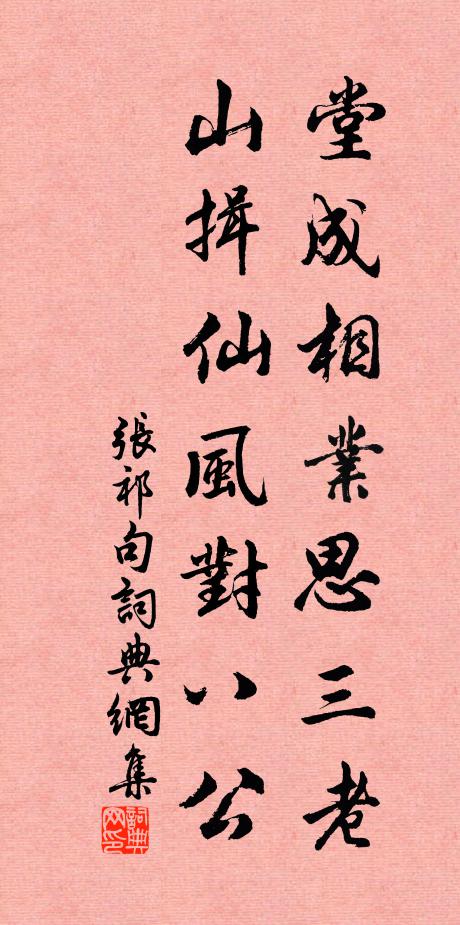 堂成相業思三老
山揖仙風對八公
張祁句詞典網集
詞典網印